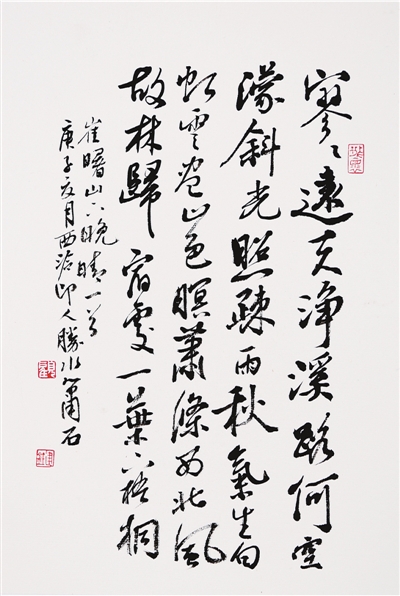 寥〻遠天净溪路何空
濛斜光照疎雨秋氣生白
虹雲盡山色暝蕭條西北風
故林歸宿處一葉下梧桐
崔曙山下晚晴一首
庚子夏月西泠印人勝水蕭石